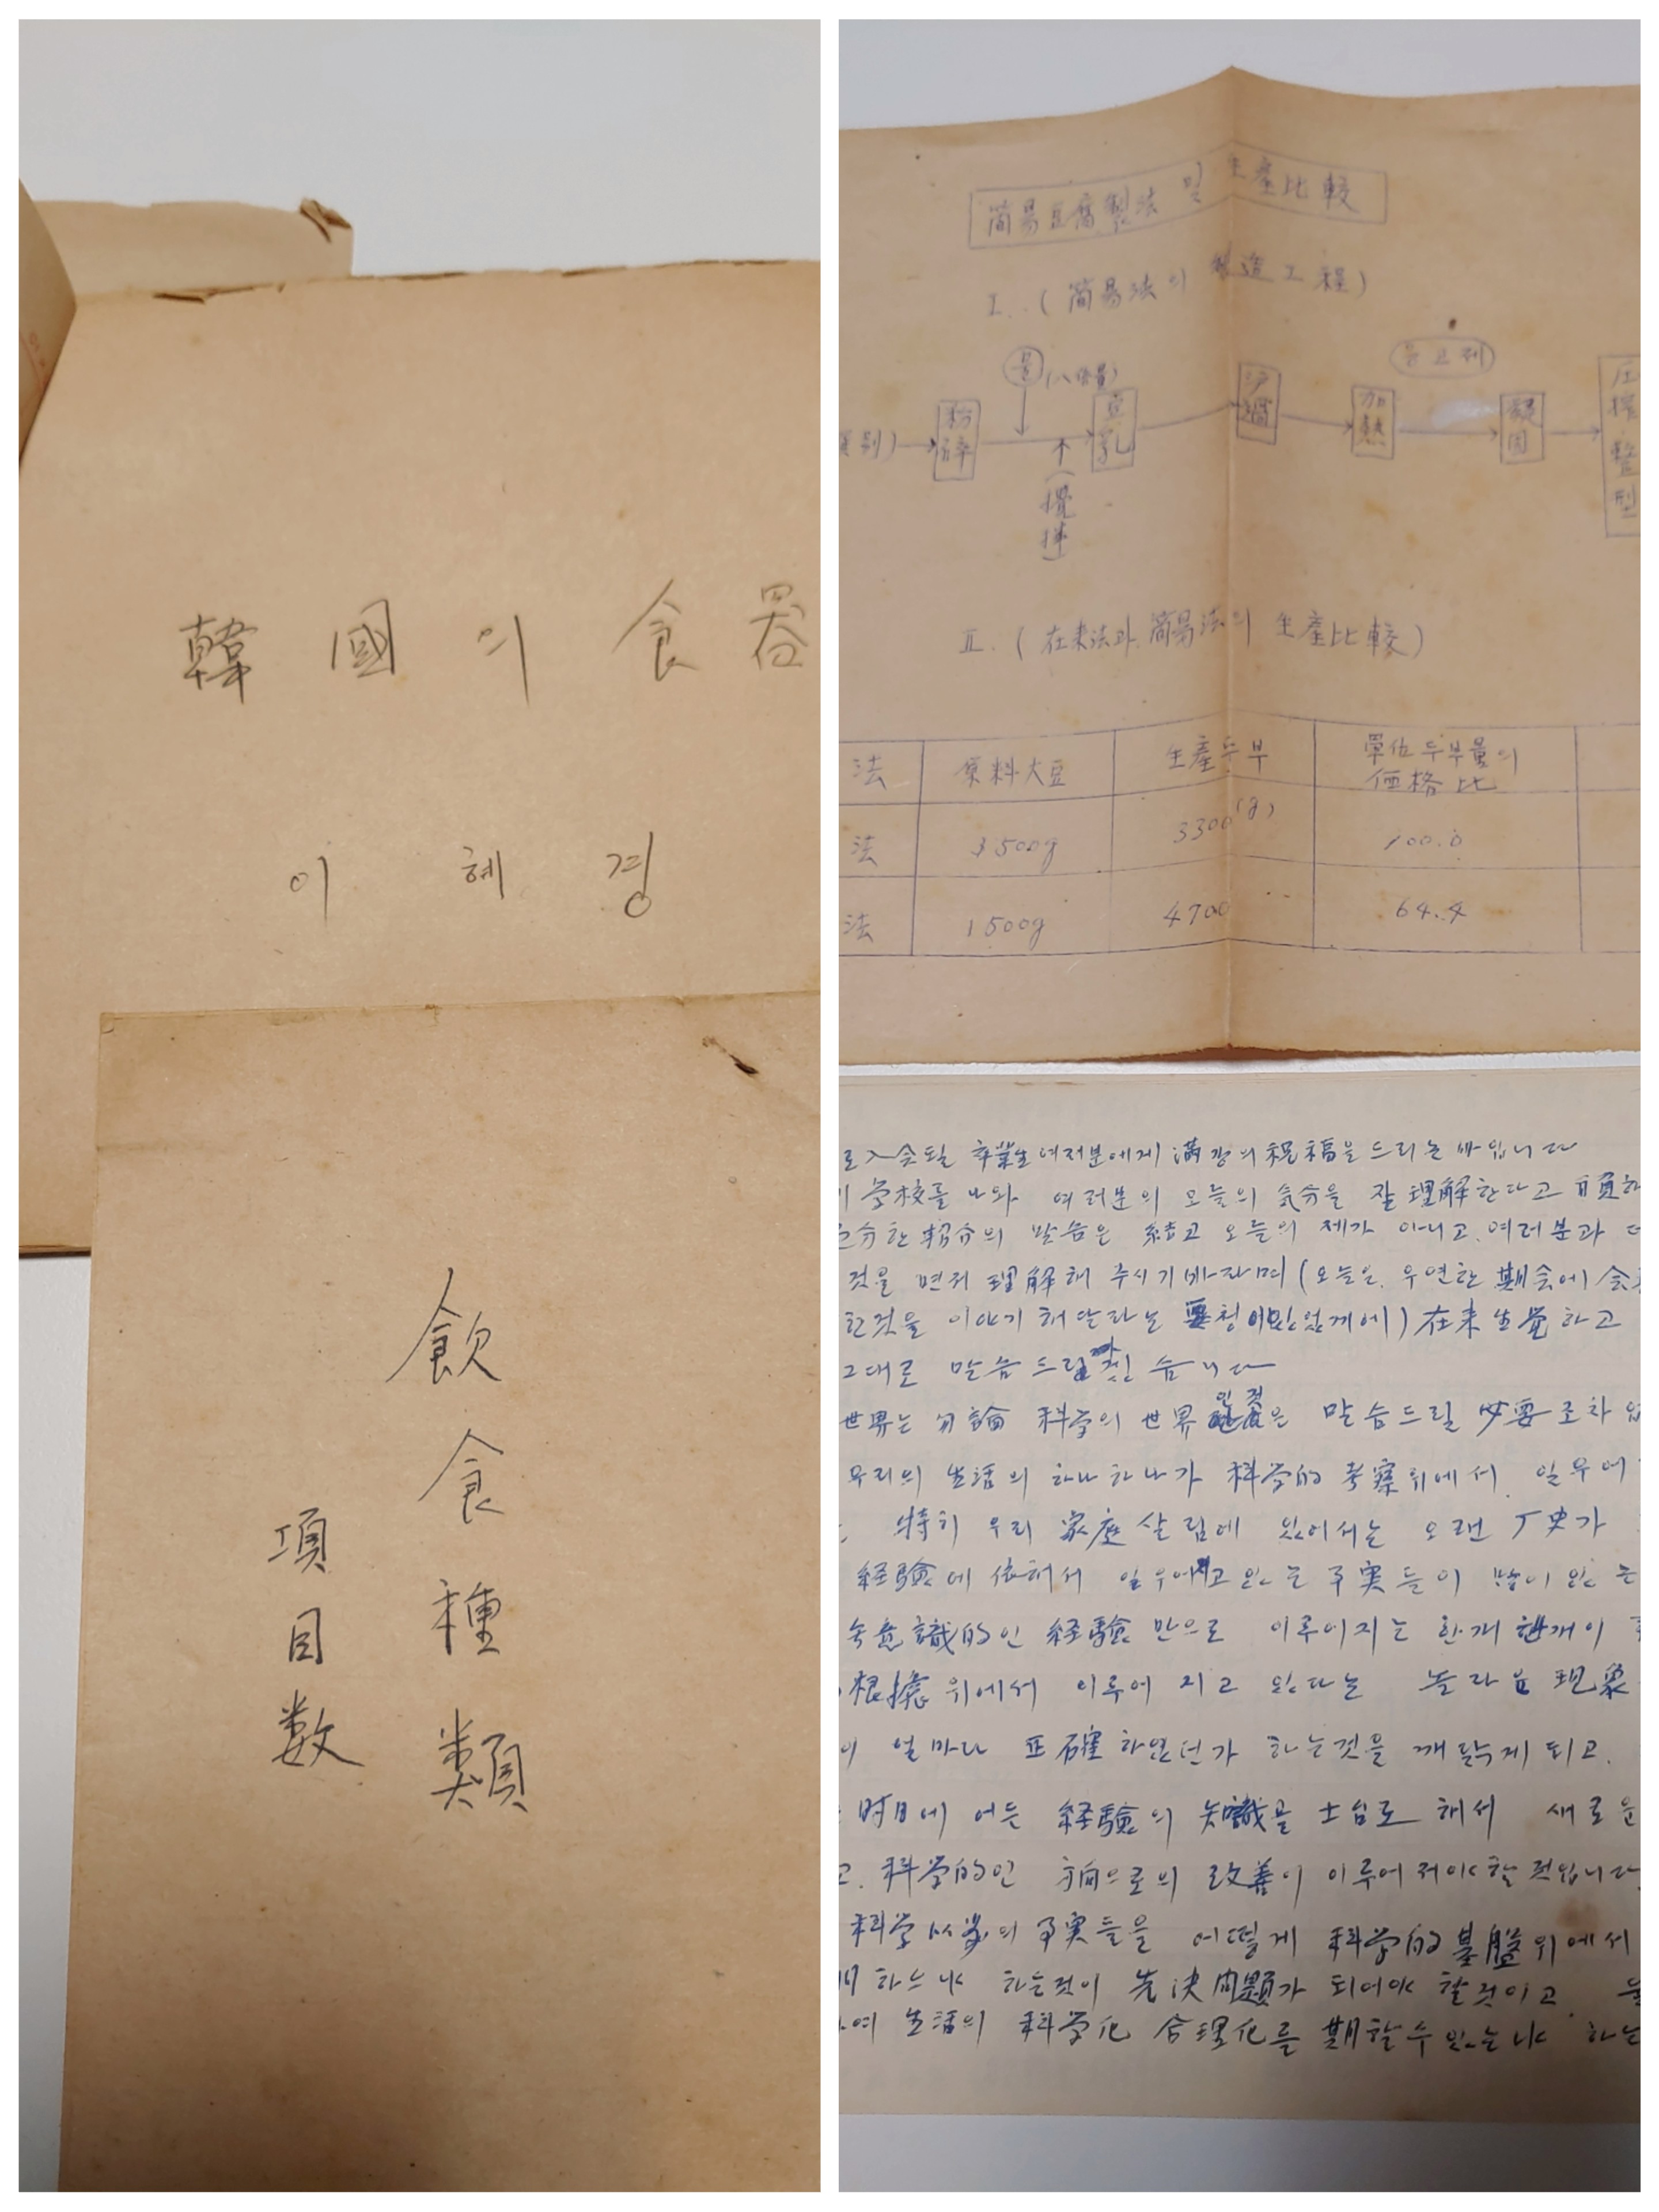 韓國의 食器
이혜경
飲食種類
項目数
簡易豆腐製法 및 生産比較
I. (簡易法의 製造工程)
물 (八倍量)
응고제
粉碎
豆乳
沪過
加熱
凝固
圧搾整型
(攪拌)
II. (在来法과 簡易法의 生産比較)
法 原料大豆 生産두부 單位두부量의 価格比
法 3500g 3300(g) 100.0
法 1500g 4700 〃 64.4
로 入会될 卒業生 여러분에게 満腔의 祝福을 드리는 바입니다
学校를 나와 여러분의 오늘의 気分을 잘 理解한다고 自負하
한 紹介의 말씀은 結코 오늘의 제가 아니고, 여러분과
것을 먼저 理解해 주시기 바라며 (오늘은, 우연한 期会에
한것을 이야기 해달라는 要청이 있었게에) 在来 生覚하고
그대로 말씀드리겠습니다
世界는 勿論 科学의 世界 말씀드릴 必要조차
우리의 生活의 하나하나가 科学的 考察위에서 일우어
特히 우리 家庭살림에 있어서는 오랜 丁史가
経験에 依해서 일우어지고 있는 事実들이 많이 있는
無意識的인 経験만으로 이루어지는 한개 한개이
根據위에서 이루어 지고 있다는 놀라운 現象
이 얼마나 正確하였던가 하는것을 깨닭게 되고,
時日에 어든 経験의 知識을 土台로 해서 새로운
고, 科学的인 方向으로의 改善이 이루어져야 할 것입니다
科学以前의 事実들을 어떻게 科学的 基盤위에서
하느냐 하는것이 先決問題가 되어야 할것이고,
여 生活의 科学化 合理化를 期할수 있느냐 하는